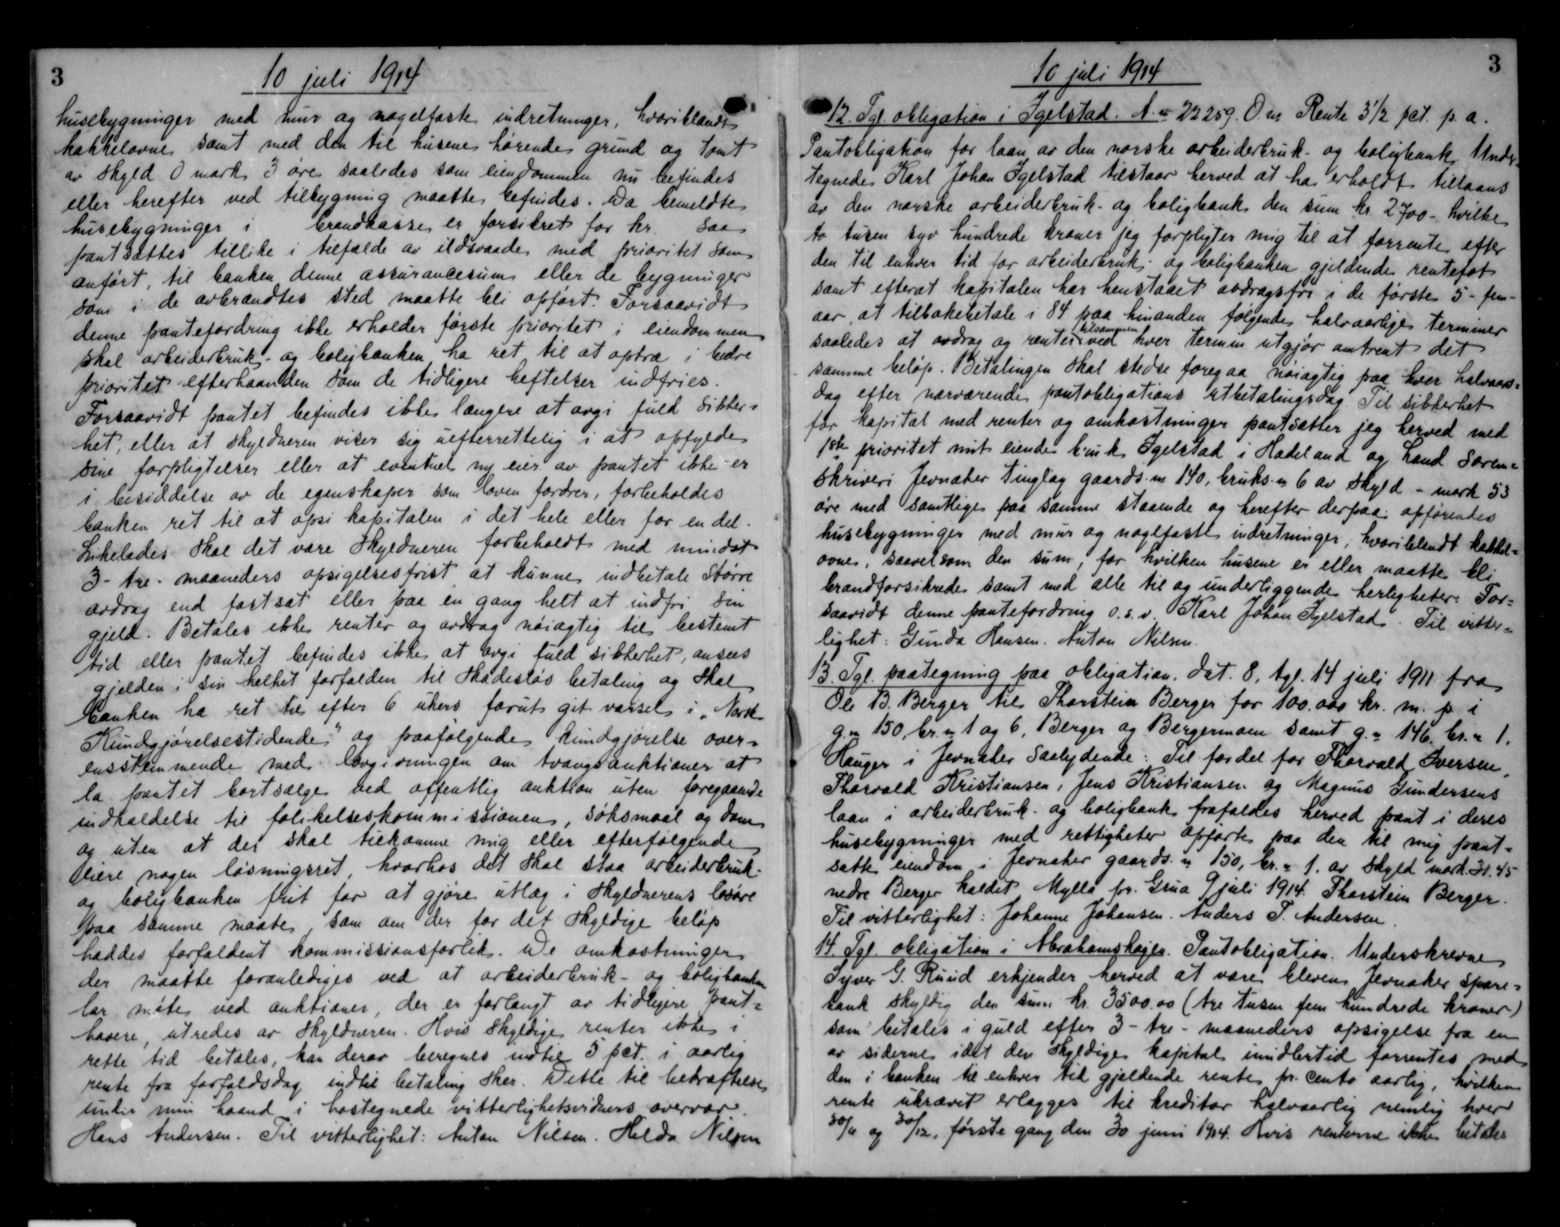 3
10 juli 1914
husebygninger med mur og nagelfaste indretninger, hvoriblandt
kakkelovne samt med den til husene hørende grund og tomt
av skyld 0 mark 3 øre saaledes som eiendommen nu befindes
eller herefter ved tilbygning maatte befindes. Da bemeldte
husebygninger i brandkasse er forsikret for kr. saa
pantsættes tillike i tilfælde av ildsvaade med prioritet som
anført, til banken denne assurancesum eller de bygninger
som i de avbrændtes sted maatte bli opført. Forsaavidt
denne pantefordring ikke erholder første prioritet i eiendommen
skal arbeiderbruk- og boligbanken ha ret til at optræ i bedre
prioritet efterhaanden som de tidligere heftelser indfries.
Forsaavidt pantet befindes ikke længere at avgi fuld sikker-
het, eller at skyldneren viser sig uefterrettelig i at opfylde
sine forpligtelser eller at eventuel ny eier av pantet ikke er
i besiddelse av de egenskaper som loven fordrer, forbeholdes
banken ret til at opsi kapitalen i det hele eller for en del.
Likeledes skal det være skyldneren forbeholdt med mindst
3- tre- maaneders opsigelsesfrist at kunne indbetale større
avdrag end fastsat eller paa en gang helt at indfri sin
gjeld. Betales ikke renter og avdrag nøiagtig til bestemt
tid eller pantet befindes ikke at avgi fuld sikkerhet, ansees
gjelden i sin helhet forfalden til skadesløs betaling og skal
banken ha ret til efter 6 ukers forut git varsel i „Norsk
Kundgjørelsestidende" og paafølgende kundgjørelse over-
ensstemmende med lovgivningen om tvangsauktioner at
la pantet bortsælge ved offentlig auktion uten foregaaende
indkaldelse til forlikelseskommissionen, søksmaal og dom
og uten at der skal tilkomme mig eller efterfølgende
eiere nogen løsningsret, hvorhos det skal staa arbeiderbruk-
og boligbanken frit for at gjøre utlæg i skyldnerens løsøre
paa samme maate, som om der for det skyldige beløp
haddes forfaldent kommissionsforlik. De omkostninger
der maatte foranlediges ved at arbeiderbruk- og boligbanken
lar møte ved auktioner, der er forlangt av tidligere pant-
havere, utredes av skyldneren. Hvis skyldige renter ikke i
rette tid betales, kan derav beregnes indtil 5 pct. i aarlig
rente fra forfaldsdag indtil betaling sker. Dette til bekræftelse
under min haand i hostegnede vitterlighetsvidners overvær.
Hans Andersen. Til vitterlighet: Anton Nilsen. Helda Nilsen
3
10 juli 1914
12. Tgl. obligation i Igelstad. A. 22259. O m Rente 3 1/2 pct. p. a.
Pantobligation for laan av den norske arbeiderbruk- og boligbank. Under-
tegnede Karl Johan Igelstad tilstaar herved at ha erholdt tillaans
av den norske arbeiderbruk- og boligbank den sum kr. 2700- hvilke
to tusen syv hundrede kroner jeg forpligter mig til at forrente efter
den til enhver tid for arbeiderbruk- og boligbanken gjeldende rentefot
samt efterat kapitalen har henstaaet avdragsfri i de første 5- fem-
aar, at tilbakebetale i 84 paa hinanden følgende halvaarlige terminer
saaledes at avdrag og renter tilsammen ved hver termin utgjør omtrent det
samme beløp. Betalingen skal stedse foregaa nøiagtig paa hver halvaars-
dag efter nærværende pantobligations utbetalingsdag. Til sikkerhet
for kapital med renter og omkostninger pantsætter jeg herved med
1ste prioritet mit eiende bruk Igelstad i Hadeland og Land soren-
skriveri Jevnaker tinglag gaards-n 140, bruks-n 6 av skyld - mark 53
øre med samtlige paa samme staaende og herefter derpaa opførendes
husebygninger med mur og naglfaste indretninger, hvoriblandt kakkel-
ovne, saavelsom den sum, for hvilken husene er eller maatte bli
brandforsikrede samt med alle til og underliggende herligheter. For-
saavidt denne pantefordring o.s.v. Karl Johan Igelstad. Til vitter-
lighet: Gunda Hansen. Anton Nilsen.
13. Tgl. paategning paa obligation, dat. 8, tgl. 14 juli 1911 fra
Ole B. Berger til Thorstein Berger for 100.000 kr. m. p. i
g. n 150, br. n 1 og 6, Berger og Bergermoen samt g. n 146, br. n 1.
Hauger i Jevnaker saalydende: Til fordel for Thorvald Iversen,
Thorvald Kristiansen, Jens Kristiansen og Magnus Gundersens
laan i arbeiderbruk- og boligbank frafaldes herved pant i deres
husebygninger med rettigheter opførte paa den til mig pant-
satte eiendom i Jevnaker gaards. n 150, br. n 1. av skyld mark 31.45
nedre Berger kaldet Mylla pr. Grua 9 juli 1914. Thorstein Berger.
Til vitterlighet: Johanne Johansen. Anders T. Andersen.
14. Tgl. obligation i Abrahamshøjen. Pantobligation. Underskrevne
Syver G. Ruud erkjender herved at være bleven Jevnaker spare-
bank skyldig den sum kr. 3500.00 (tre tusen fem hundrede kroner)
som betales i guld efter 3- tre- maaneders opsigelse fra en
av siderne idet den skyldige kapital imidlertid forrentes med
den i banken til enhver tid gjeldende rente pr. cento aarlig, hvilken
rente ukrævet erlægges til kreditor halvaarlig nemlig hver
30/6 og 30/12, første gang den 30 juni 1914. Hvis renterne ikke betales